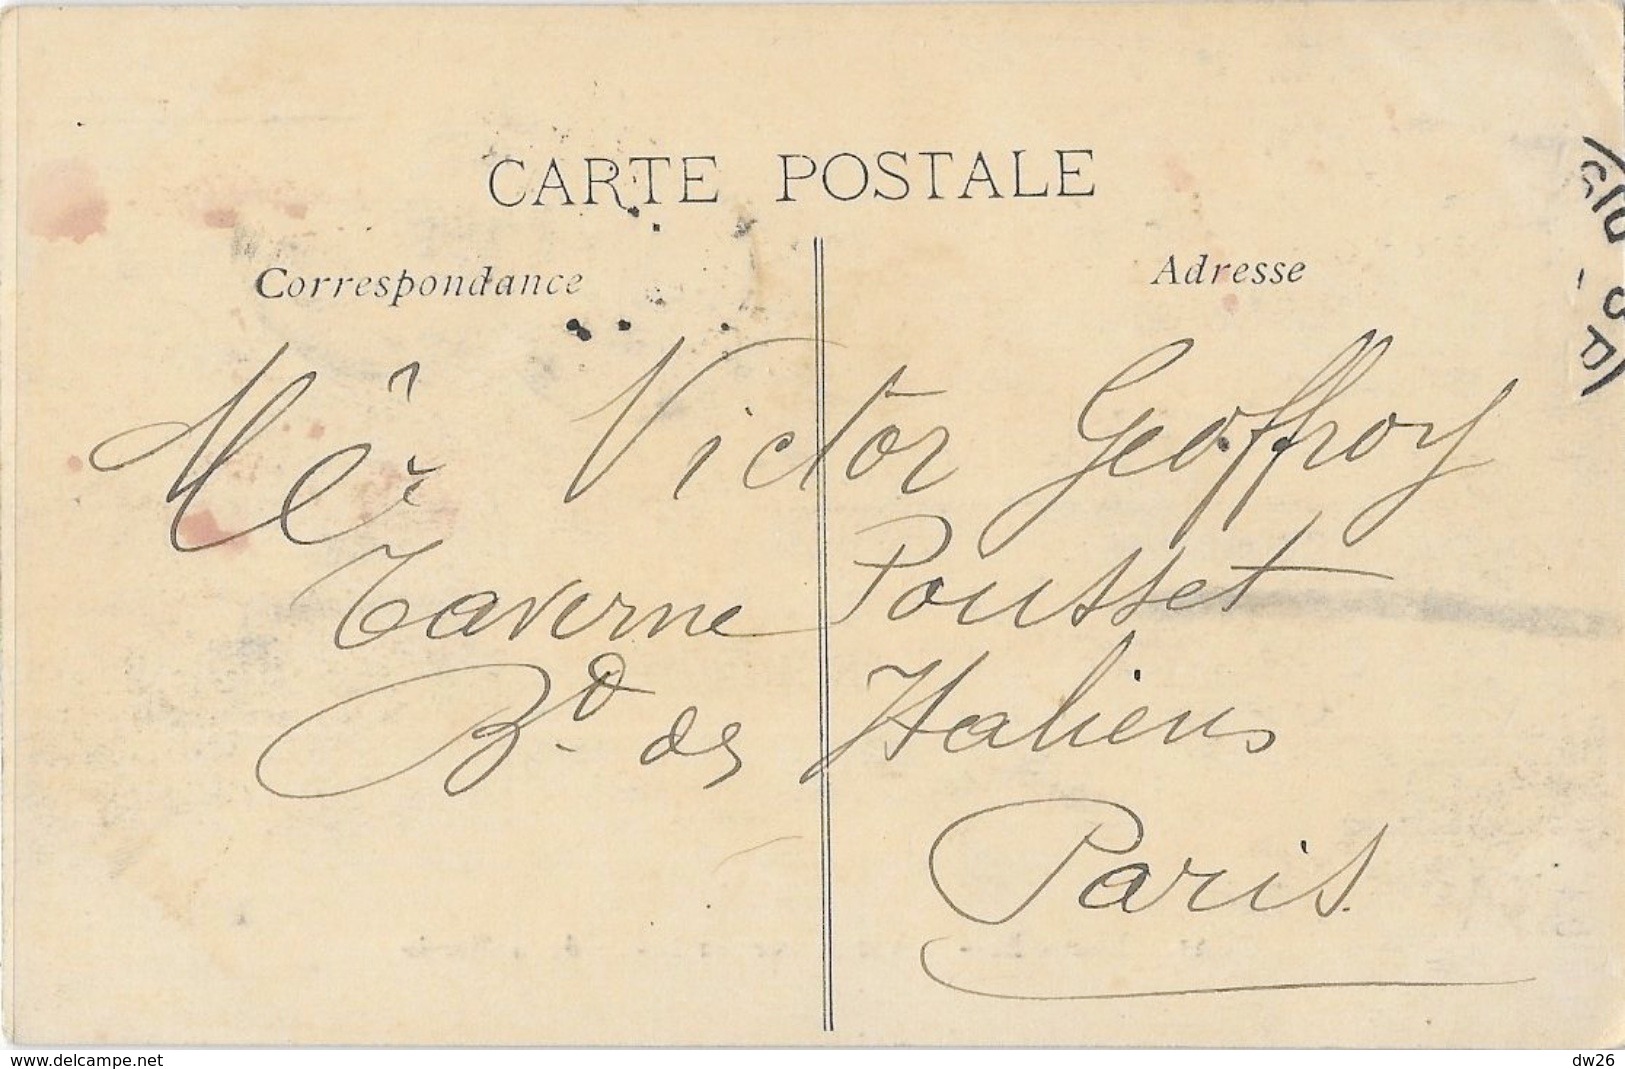 CARTE POSTALE
Correspondance
Adresse
Victor Geoffroy
Taverne Pousset
Bd. des Italiens
Paris.
www.delcampe.net
dw26